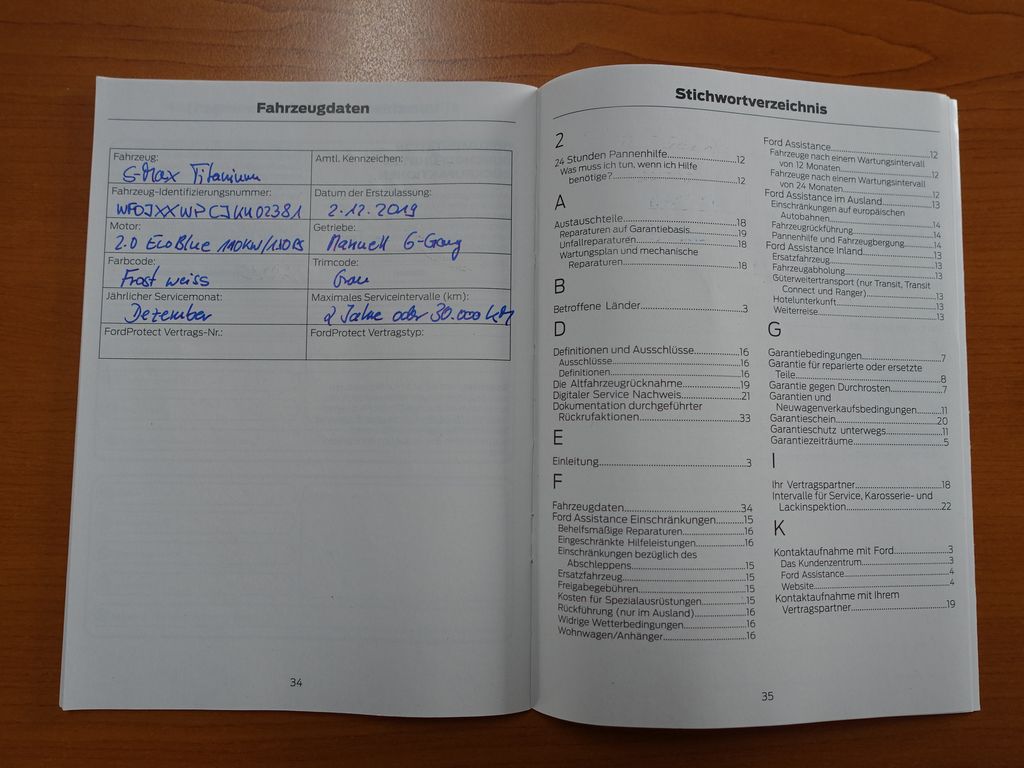 Fahrzeugdaten
Fahrzeug:
S-Max Titanium
Amtl. Kennzeichen:
Fahrzeug-Identifizierungsnummer:
WF0JXXWPCJKK02381
Datum der Erstzulassung:
2.12.2019
Motor:
2.0 EcoBlue 110KW/150PS
Getriebe:
Manuell 6-Gang
Farbcode:
Frost weiss
Trimcode:
Grau
Jährlicher Servicemonat:
Dezember
Maximales Serviceintervalle (km):
2 Jahre oder 30.000 KM
FordProtect Vertrags-Nr.:
FordProtect Vertragstyp:
34
Stichwortverzeichnis
2
24 Stunden Pannenhilfe....................12
Was muss ich tun, wenn ich Hilfe
benötige?....................12
A
Austauschteile....................18
Reparaturen auf Garantiebasis....................19
Unfallreparaturen....................18
Wartungsplan und mechanische
Reparaturen....................18
B
Betroffene Länder....................3
D
Definitionen und Ausschlüsse....................16
Ausschlüsse....................16
Definitionen....................16
Die Altfahrzeugrücknahme....................19
Digitaler Service Nachweis....................21
Dokumentation durchgeführter
Rückrufaktionen....................33
E
Einleitung....................3
F
Fahrzeugdaten....................34
Ford Assistance Einschränkungen....................15
Behelfsmäßige Reparaturen....................16
Eingeschränkte Hilfeleistungen....................16
Einschränkungen bezüglich des
Abschleppens....................15
Ersatzfahrzeug....................15
Freigabegebühren....................15
Kosten für Spezialausrüstungen....................15
Rückführung (nur im Ausland)....................16
Widrige Wetterbedingungen....................16
Wohnwagen/Anhänger....................16
Ford Assistance....................12
Fahrzeuge nach einem Wartungsintervall
von 12 Monaten....................12
Fahrzeuge nach einem Wartungsintervall
von 24 Monaten....................12
Ford Assistance im Ausland....................13
Einschränkungen auf europäischen
Autobahnen....................14
Fahrzeugrückführung....................14
Pannenhilfe und Fahrzeugbergung....................14
Ford Assistance Inland....................13
Ersatzfahrzeug....................13
Fahrzeugabholung....................13
Güterweitertransport (nur Transit, Transit
Connect und Ranger)....................13
Hotelunterkunft....................13
Weiterreise....................13
G
Garantiebedingungen....................7
Garantie für reparierte oder ersetzte
Teile....................8
Garantie gegen Durchrosten....................7
Garantien und
Neuwagenverkaufsbedingungen....................11
Garantieschein....................20
Garantieschutz unterwegs....................11
Garantiezeiträume....................5
I
Ihr Vertragspartner....................18
Intervalle für Service, Karosserie- und
Lackinspektion....................22
K
Kontaktaufnahme mit Ford....................3
Das Kundenzentrum....................3
Ford Assistance....................4
Website....................4
Kontaktaufnahme mit Ihrem
Vertragspartner....................19
35